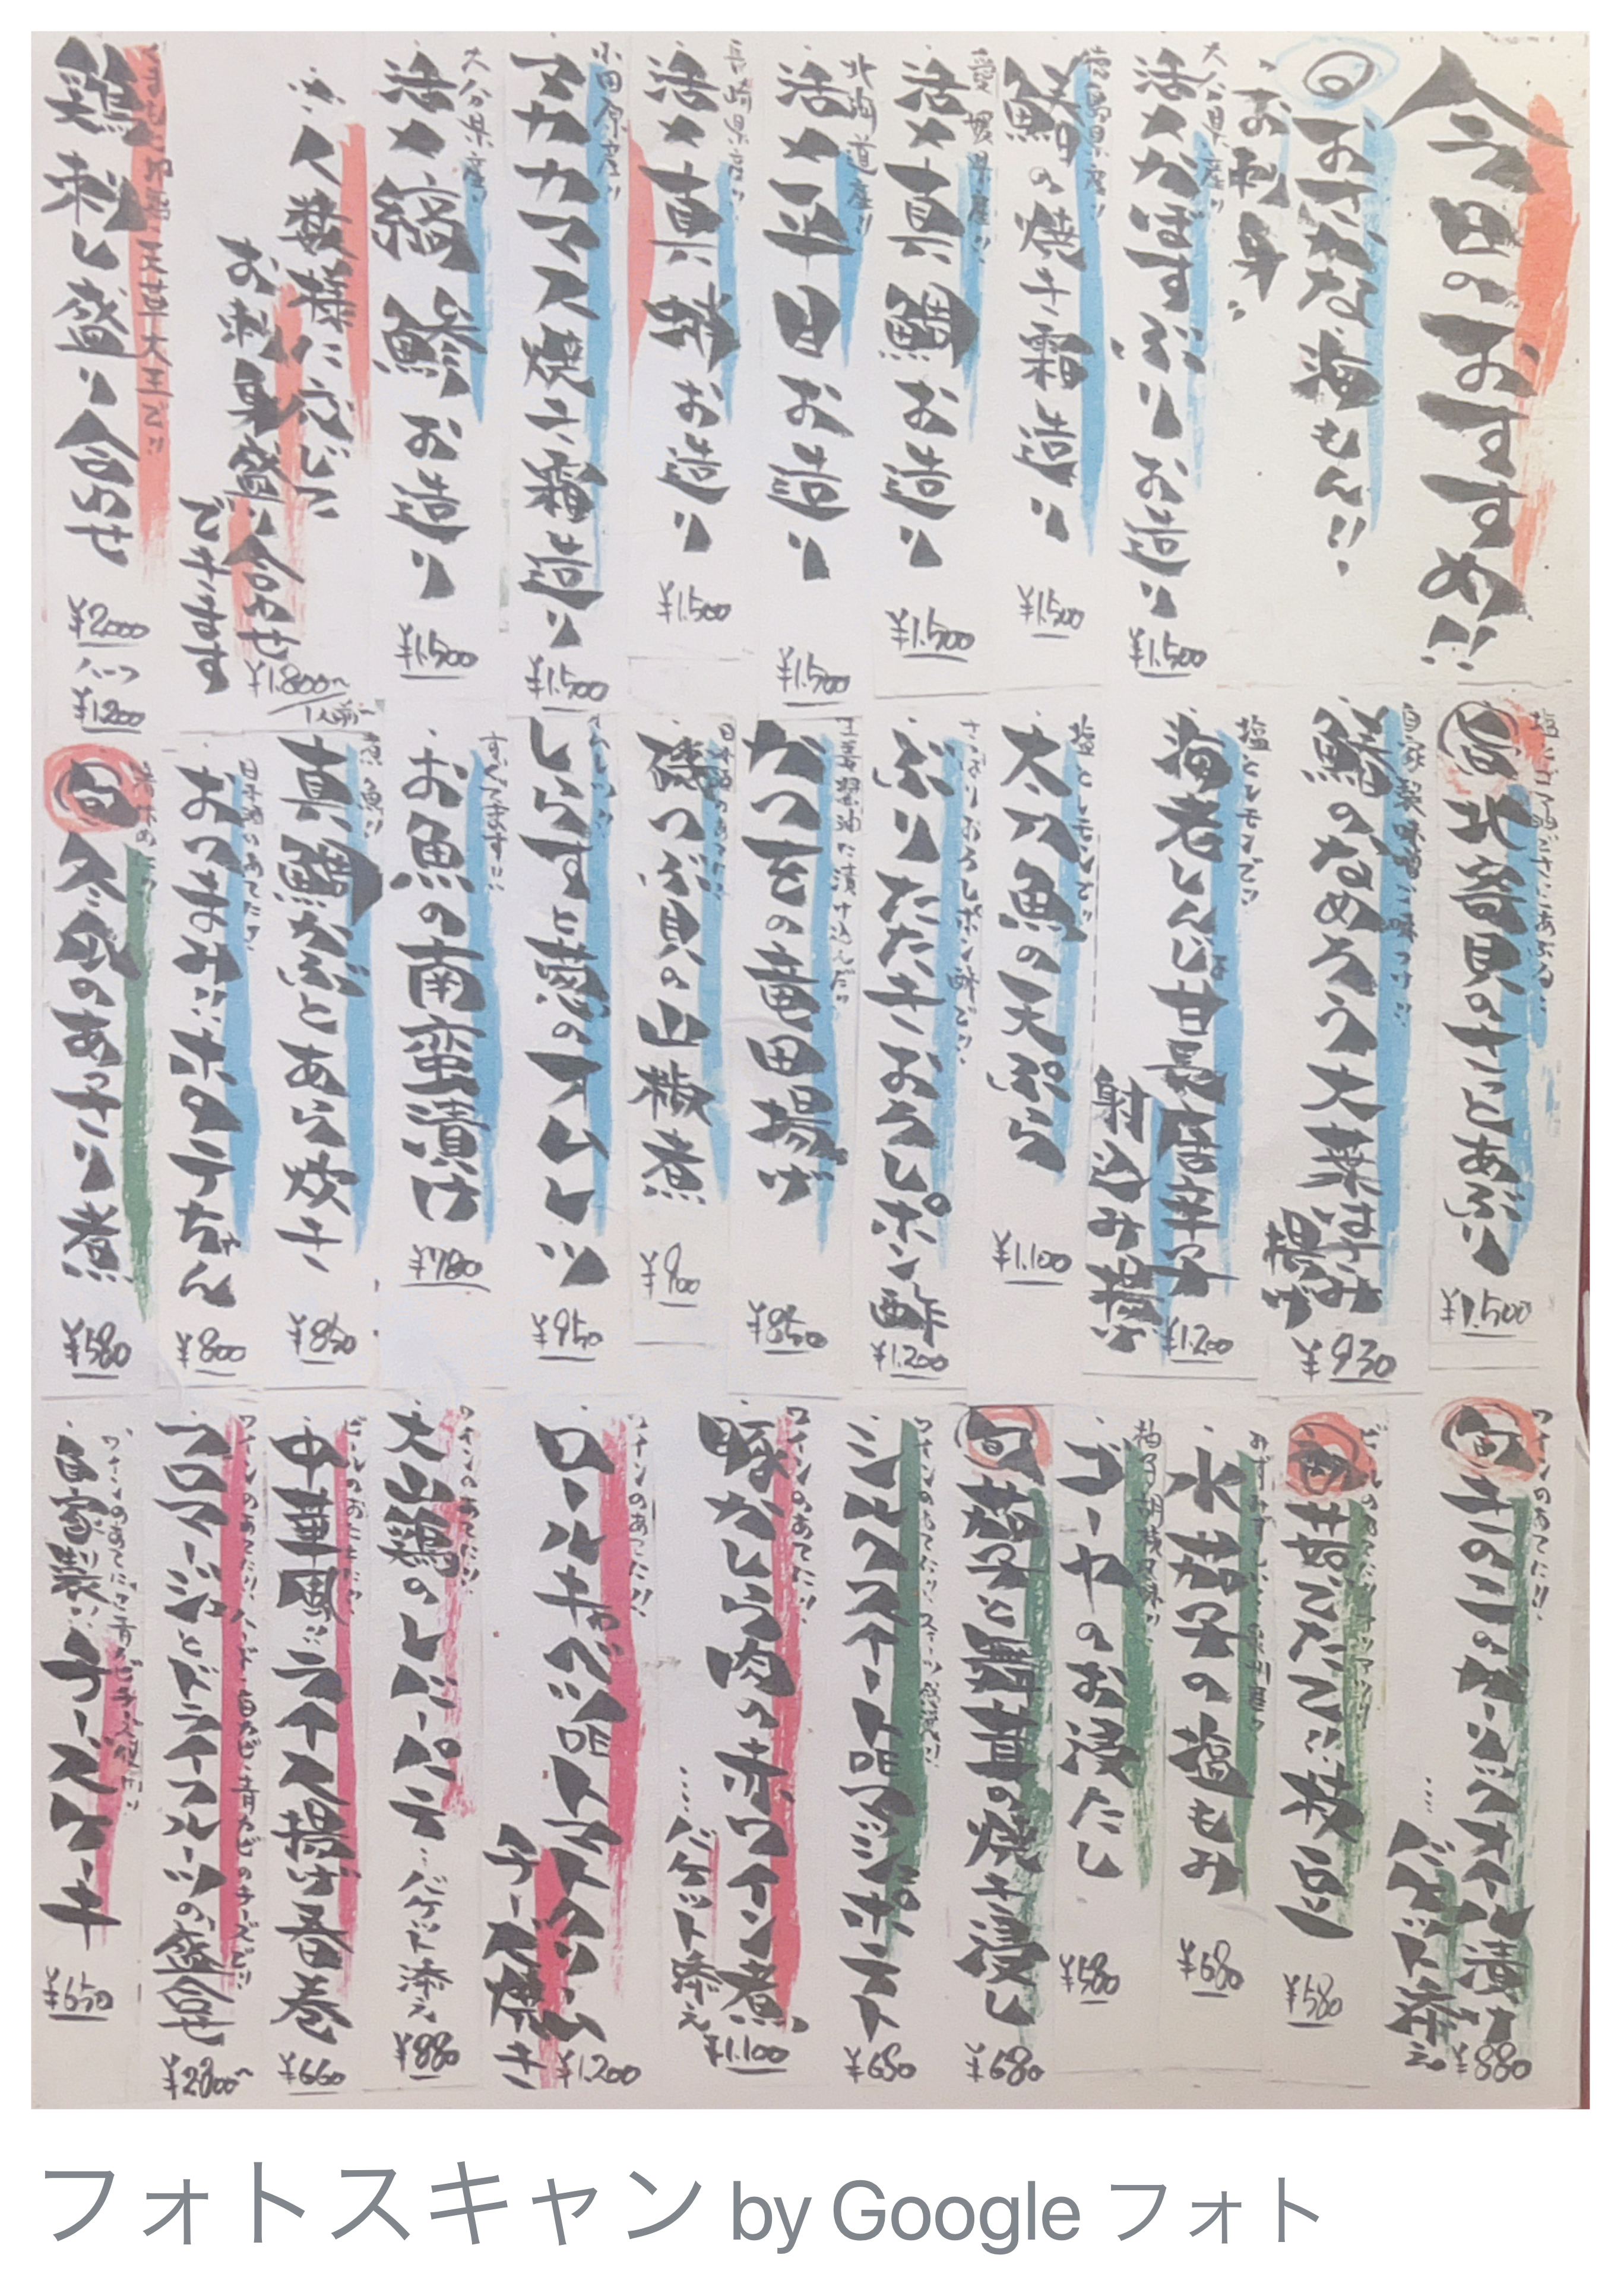 今日のおすすめ!!
旬 おさかな海もん!!
お刺身
大分県産!!
活〆かぼすぶりお造り
¥1.500
徳島県産!!
の焼き霜造り
¥1.500
愛媛県産!!
活〆真鯛お造り
¥1.500
北海道産!!
活〆平目お造り
¥1.500
長崎県産!!
活〆真蛸お造り
¥1.500
小田原産!!
マカカマス焼き霜造り
¥1.500
大分県産!!
活〆縞鯵お造り
¥1.500
人数様に応じて
お刺身盛り合わせ
できます
¥1.800〜
1人前〜
天草大王で!!
鶏刺し盛り合わせ
¥2000
ハーフ
¥1200
北寄貝のさっとあぶり
¥1.500
自家製味噌で味つけ!!
鯵のなめろう大葉はさみ
揚げ
¥930
塩とレモンで!!
海老しんじょ甘長唐辛子
射込み揚げ
¥1.200
塩とレモンで!!
太刀魚の天ぷら
¥1.100
さっぱりおろしポン酢で!!
ぶりたたきおろしポン酢
¥1.200
生姜醤油に漬け込んだ!!
かつをの竜田揚げ
¥850
磯つぶ貝の山椒煮
¥900
しらすと葱のオムレツ
¥950
すぐでます!!
お魚の南蛮漬け
¥780
真鯛かぶとあら炊き
¥850
日本酒のあてに!!
おつまみ!!ホタテちゃん
¥800
旬 冬瓜のあっさり煮
¥580
ワインのあてに!!
旬 きのこのガーリックオイル漬け
バゲット添え
¥880
旬 茹でたて!!枝豆
¥580
水茄子の塩もみ
¥680
柚子胡椒風味!!
ゴーヤのお浸し
¥580
旬 茄子と舞茸の焼き浸し
¥680
シルクスイートDEマッシュポテト
¥680
ワインのあてに!!
豚かしら肉の赤ワイン煮
バケット添え
¥1.100
ワインのあてに!!
ロールキャベツDEトマトクリーム
チーズ焼き
¥1.200
ワインのあてに!!
大山鶏のレバーパテ
バゲット添え
¥880
ビールのおともに!!
中華風!!ライス揚げ春巻
¥660
ワインのあてに!!ハード・白カビ・青カビのチーズで!!
フロマージュとドライフルーツの盛合せ
¥2800〜
ワインのあてに
自家製!!チーズケーキ
¥650
フォトスキャン by Google フォト